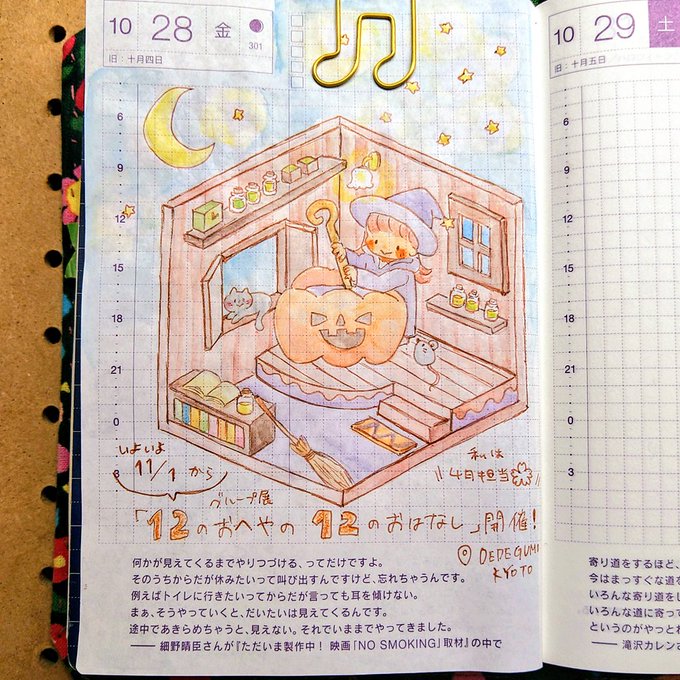 10 28 金
301
旧・十月四日
10 29 土
旧・十月五日
6
9
12
15
18
21
0
3
いよいよ
11/1 から
私は
4日担当
グループ展
「12のおへやの 12のおはなし」開催!
@ DEDEGUMU
KYOTO
何かが見えてくるまでやりつづける、ってだけですよ。
そのうちからだが休みたいって叫び出すんですけど、忘れちゃうんです。
例えばトイレに行きたいってからだが言っても耳を傾けない。
まぁ、そうやっていくと、だいたいは見えてくるんです。
途中であきらめちゃうと、見えない。それでいままでやってきました。
―― 細野晴臣さんが『ただいま製作中! 映画「NO SMOKING」取材』の中で
6
9
12
15
18
21
0
3
寄り道をするほど、
今はまっすぐな道を
いろんな寄り道をし
いろんな道に寄って
というのがやっとわ
―― 滝沢カレンさ